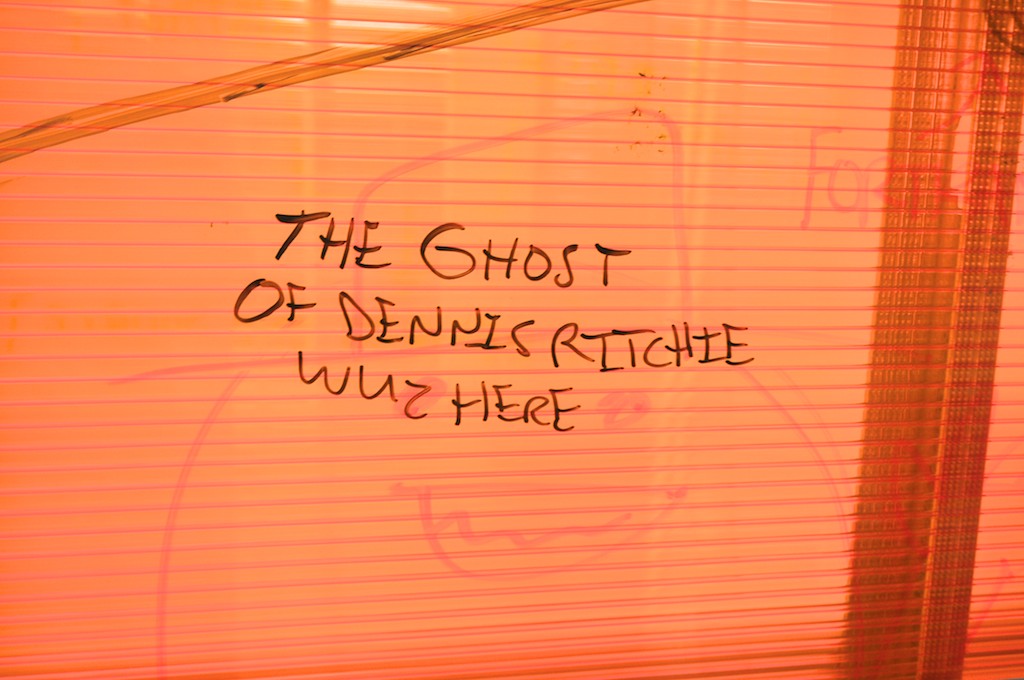 THE GHOST
OF DENNIS RITCHIE
WUZ HERE